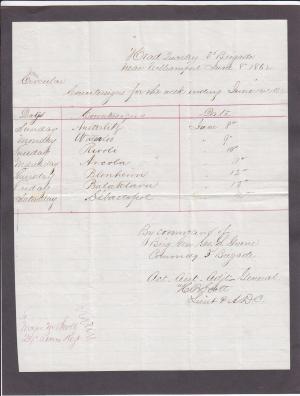 Head Quarters 3d Brigade
near Williamsport June 8" 1862
Circular
Countersigns for the week ending June
Days Countersigns Date
Sunday Austerlitz June 8"
Monday 9"
Tuesday Rivoli 10"
Wednesday Arcola 11"
Thursday Blenheim 12"
Friday Balaklava 13"
Saturday Sebastopol
By command of
Brig Gen Geo. S. Greene
Comdg 3d Brigade
Act. Asst. Adjt General
Lieut & A.D.C.